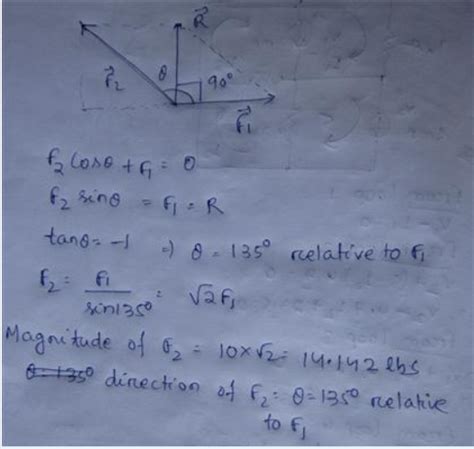 R⃗
θ
F⃗₂
90°
F⃗₁
f₂ cosθ + f₁ = 0
f₂ sinθ = f₁ = R
tanθ = -1 ⇒ θ = 135° relative to f₁
f₂ = f₁ / sin135° = √2 f₁
Magnitude of f₂ = 10×√2 = 14.142 lbs
θ = 135° direction of f₂ = θ = 135° relative
to f₁